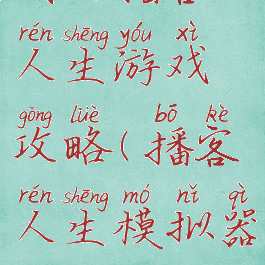 rén shēng yóu xì
人生游戏
gōng lüè bō kè
攻略(播客
rén shēng mó nǐ qì
人生模拟器